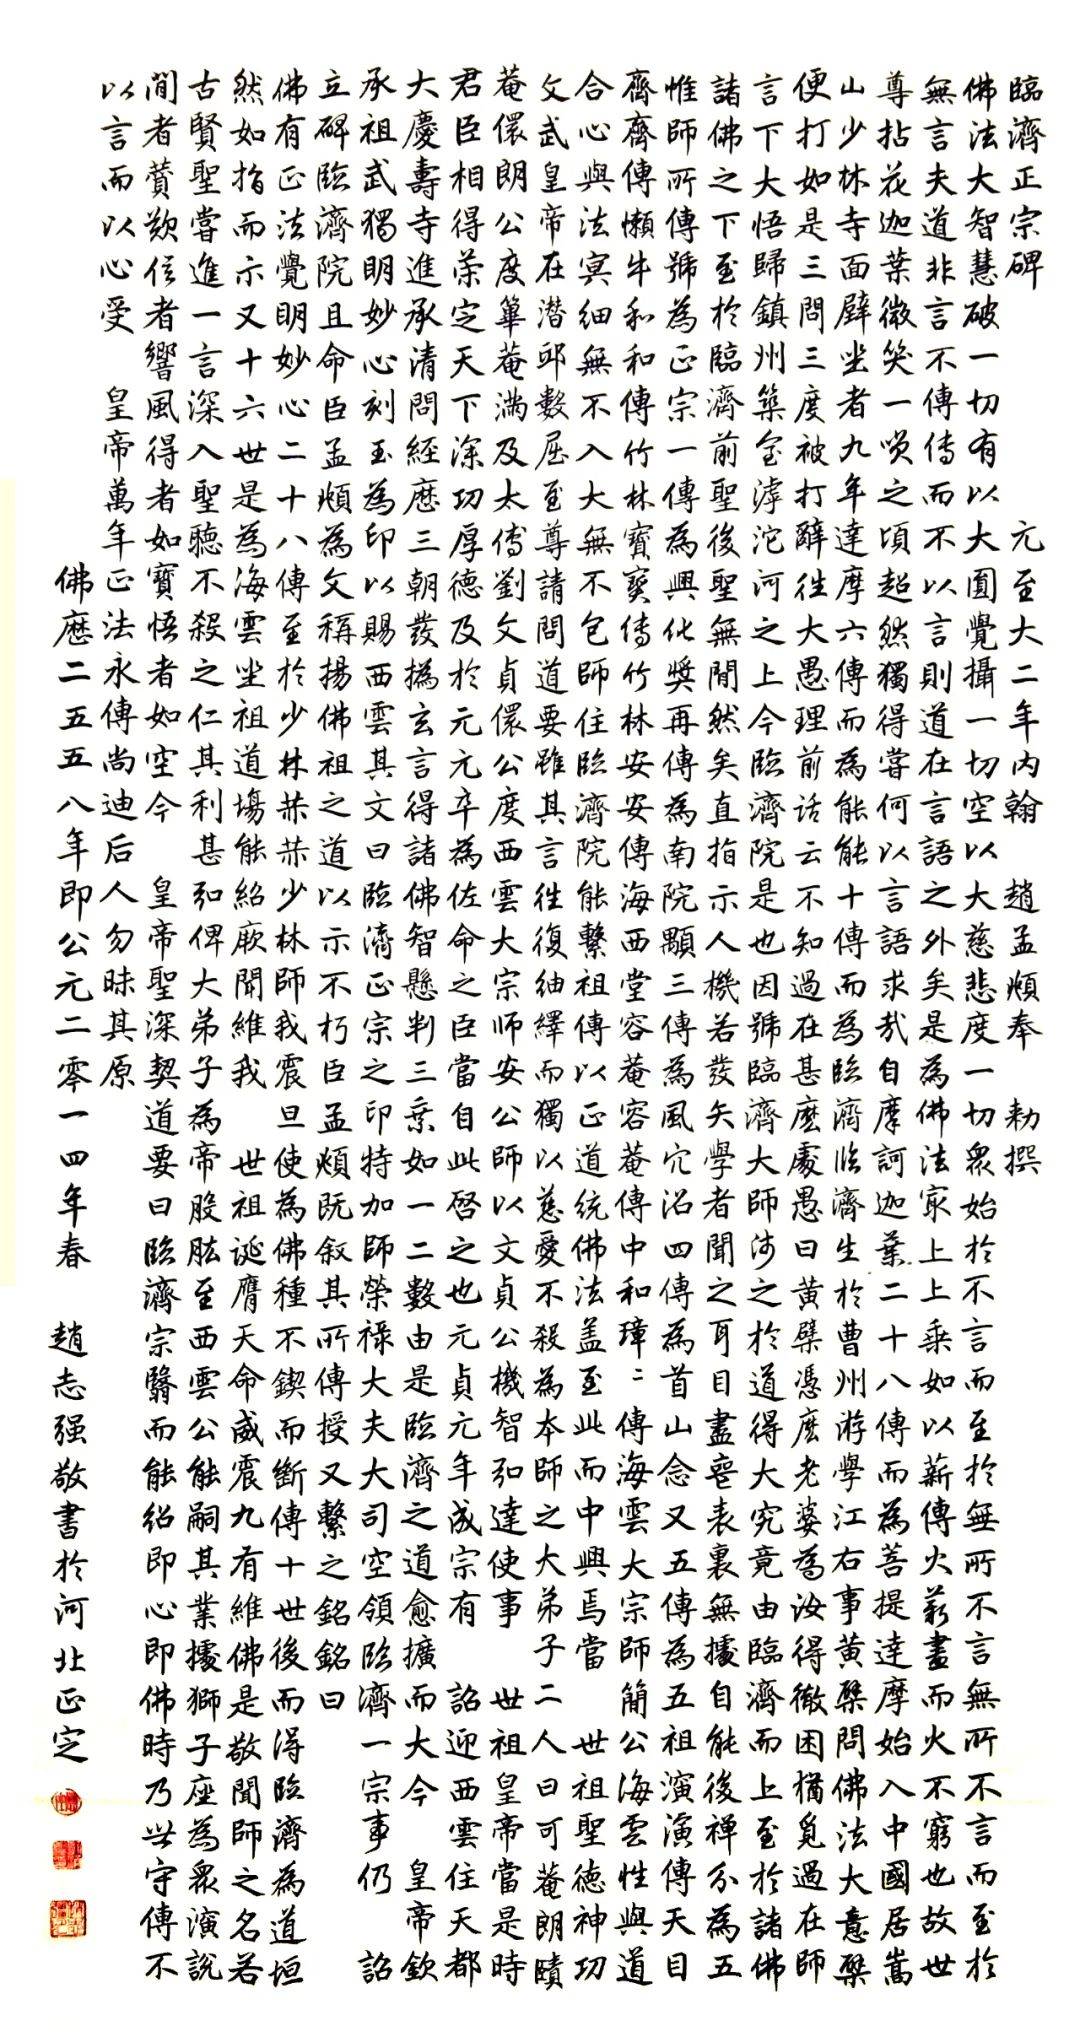 臨濟正宗碑 元至大二年内翰 趙孟頫奉 勅撰
佛法大智慧破一切有以大圓覺攝一切空以大慈悲度一切眾始於不言而至於無所不言無所不言而至於
無言夫道非言不傳傳而不以言則道在言語之外矣是為佛法家上上乘如以薪傳火薪盡而火不窮也故世
尊拈花迦葉微笑一笑之頃超然獨得嘗何以言語求哉自摩訶迦葉二十八傳而為菩提達摩始入中國居嵩
山少林寺面壁坐者九年達摩六傳而為能能十傳而為臨濟臨濟生於曹州游學江右事黃檗問佛法大意檗
便打如是三問三度被打辭往大愚理前話云不知過在甚麼處愚曰黃檗憑麼老婆為汝得徹困猶覓過在師
言下大悟歸鎮州築室滹沱河之上今臨濟院是也因號臨濟大師師之於道得大究竟由臨濟而上至於諸佛
諸佛之下至於臨濟前聖後聖無間然矣直指示人機若發矢學者聞之耳目盡喪表裏無據自能後禪分為五
惟師所傳號為正宗一傳為興化獎再傳為南院顒三傳為風穴沼四傳為首山念又五傳為五祖演演傳天目
齊齊傳懶牛和和傳竹林寶寶傳竹林安安傳海西堂容菴容菴傳中和璋〻傳海雲大宗師 簡公海雲性與道
合心與法冥細無不入大無不包師住臨濟院能繫祖傳以正道統佛法盖至此而中興焉當 世祖聖德神功
文武皇帝在潜邸數屈至尊請問道要雖其言往復紬繹而獨以慈愛不殺為本師之大弟子二人曰可菴朗賾
菴儇朗公度篳菴滿及太傅劉文貞儇公度西雲大宗师安公師以文貞公機智弘達使事 世祖皇帝當是時
君臣相得榮定天下深功厚德及於元元卒為佐命之臣當自此啓之也元貞元年成宗有 詔迎西雲住天都
大慶壽寺進承清問經歷三朝發撝玄言得諸佛智懸判三乗如一二數由是臨濟之道愈擴而大今 皇帝欽
承祖武獨明妙心刻玉為印以賜西雲其文曰臨濟正宗之印特加師榮祿大夫大司空領臨濟一宗事仍 詔
立碑臨濟院且命臣孟頫為文稱揚佛祖之道以示不朽臣孟頫既叙其所傳授又繫之銘銘曰
佛有正法覺明妙心二十八傳至於少林㳟㳟少林師我震旦使為佛種不鍥而斷傳十世後而得臨濟為道垣
然如指而示又十六世是為海雲坐祖道場能紹厥聞維我 世祖誕膺天命威震九有維佛是敬聞師之名若
古賢聖嘗進一言深入聖聽不殺之仁其利甚弘俾大弟子為帝股肱至西雲公能嗣其業據獅子座為眾演説
間者賛歎信者響風得者如寶悟者如空今 皇帝聖深契道要曰臨濟宗翳而能紹即心即佛時乃世守傳不
以言而以心受 皇帝萬年正法永傳尚迪后人勿昧其原
佛歷二五五八年即公元二零一四年春 趙志强敬書於河北正定